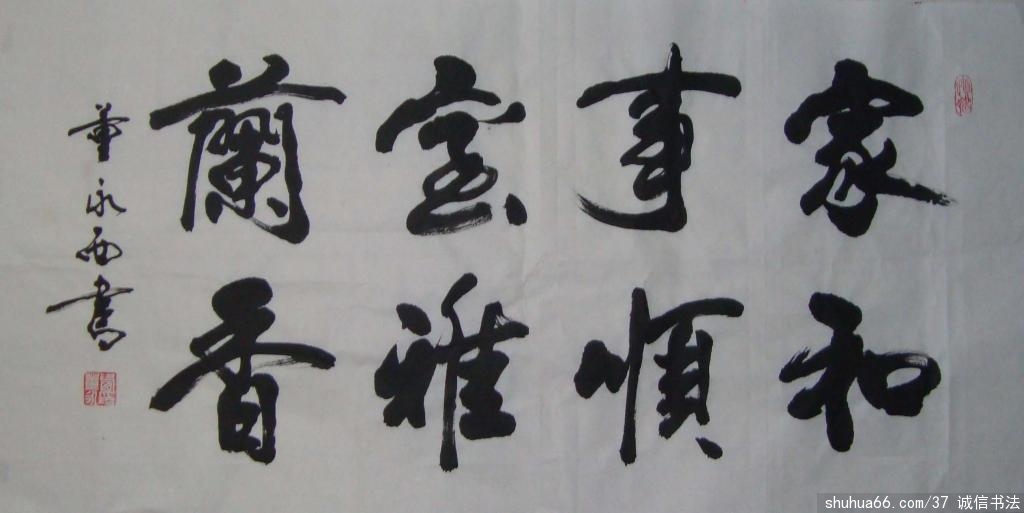 家和
事順
室雅
蘭香
董永西書
shuhua66.com/37 诚信书法